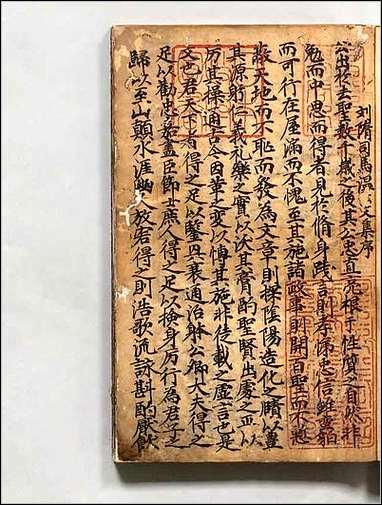 劉隋司馬溫公文集序
公出於去聖數千歲之後其公忠直亮根于性質之自然非
勉而中思而得者見於脩身踐言則孝悌忠信雖蠻貊
而可行在屋漏而不愧至其施諸政事則開百聖而不慙
蔽天地而不恥而發爲文章則探陰陽造化之賾以冀
其源躬仁義礼樂之實以沃其膏酌聖賢出處之正以
厉其操通古今因革之变以博其施非徒載之虛言也是
文也君天下者得之足以鑒興衰通治躰公卿大夫得之
足以勸忠嘉盡臣節士庶人得之足以檢身厉行爲君子之
歸以至山顛水涯幽人放客得之則浩歌流詠斟酌厭飫